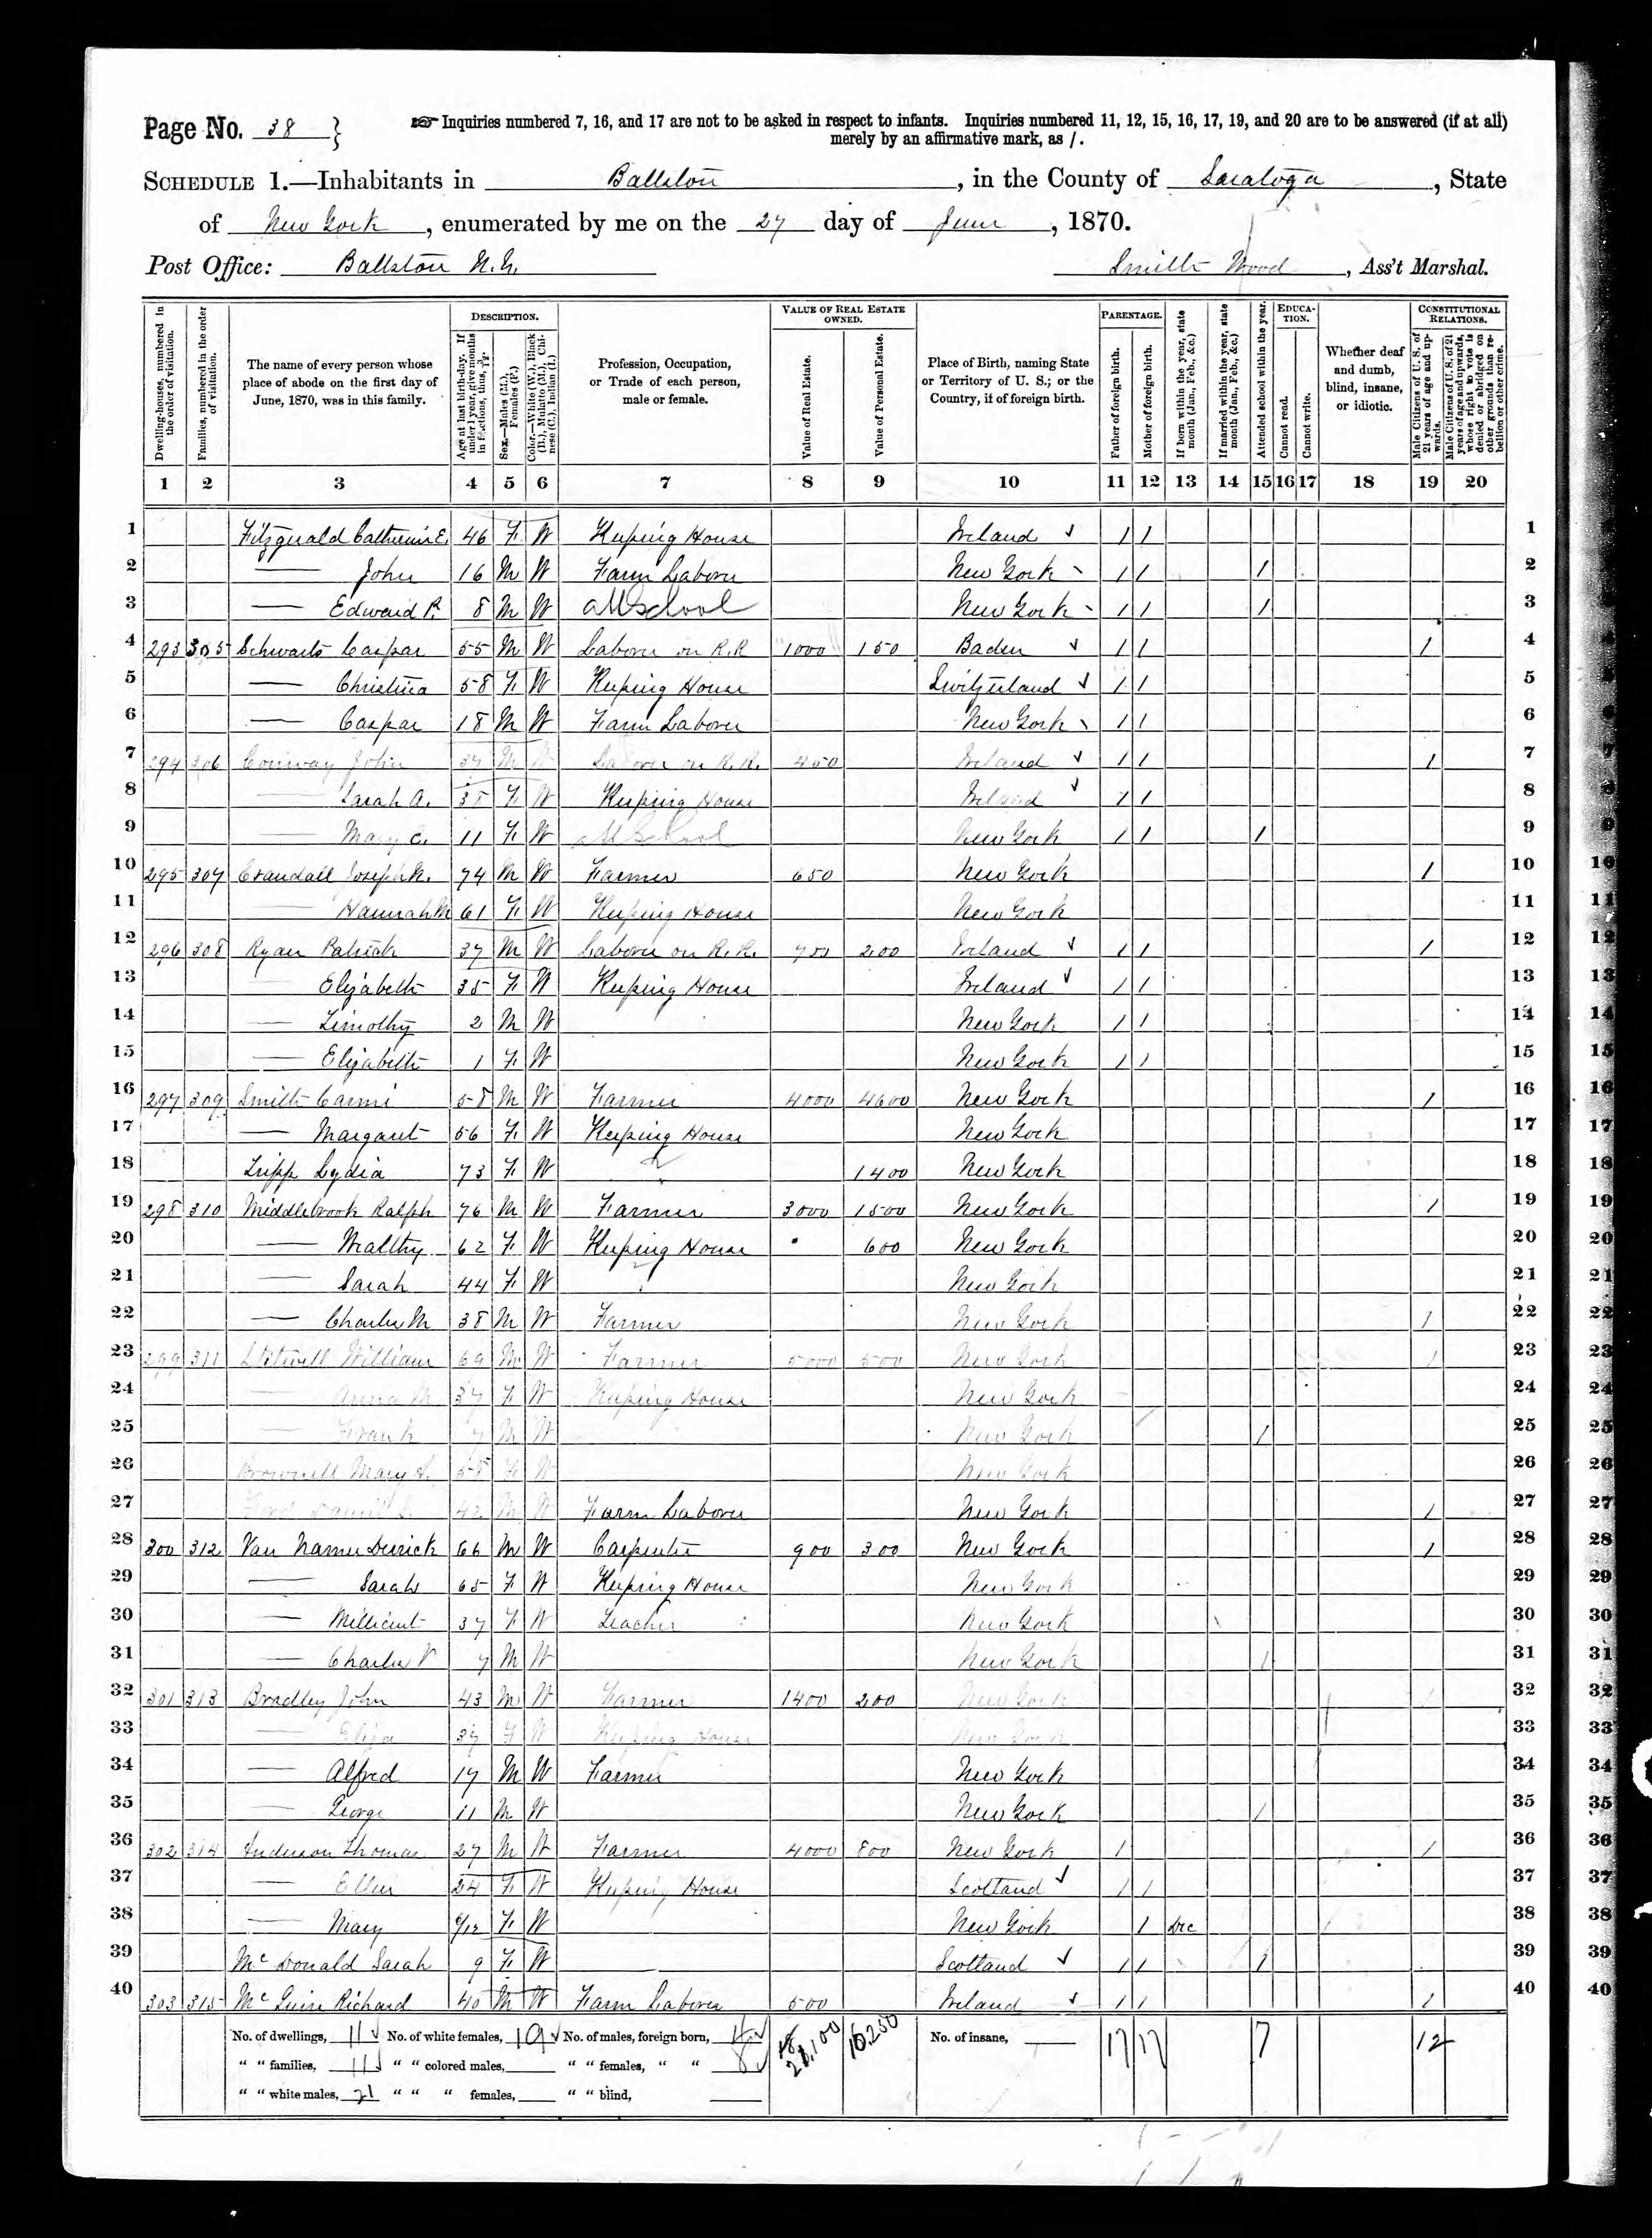 Page No. 38 }
☞ Inquiries numbered 7, 16, and 17 are not to be asked in respect to infants. Inquiries numbered 11, 12, 15, 16, 17, 19, and 20 are to be answered (if at all)
merely by an affirmative mark, as /.
SCHEDULE 1.—Inhabitants in Ballston, in the County of Saratoga, State
of New York, enumerated by me on the 27 day of June, 1870.
Post Office: Ballston N.Y. Smith Wood, Ass't Marshal.
Dwelling-houses, numbered in the order of visitation.
Families, numbered in the order of visitation.
The name of every person whose place of abode on the first day of June, 1870, was in this family.
DESCRIPTION.
Age at last birth-day. If under 1 year, give months in fractions, thus, 3/12.
Sex.—Males (M.), Females (F.)
Color.—White (W.), Black (B.), Mulatto (M.), Chinese (C.), Indian (I.)
Profession, Occupation, or Trade of each person, male or female.
VALUE OF REAL ESTATE OWNED.
Value of Real Estate.
Value of Personal Estate.
Place of Birth, naming State or Territory of U. S.; or the Country, if of foreign birth.
PARENTAGE.
Father of foreign birth.
Mother of foreign birth.
If born within the year, state month (Jan., Feb., &c.)
If married within the year, state month (Jan., Feb., &c.)
Attended school within the year.
EDUCATION.
Cannot read.
Cannot write.
Whether deaf and dumb, blind, insane, or idiotic.
CONSTITUTIONAL RELATIONS.
Male Citizens of U. S. of 21 years of age and upwards.
Male Citizens of U. S. of 21 years of age and upwards, whose right to vote is denied or abridged on other grounds than rebellion or other crime.
1 2 3 4 5 6 7 8 9 10 11 12 13 14 15 16 17 18 19 20
1 Fitzgerald Catherine E. 46 F W Keeping House Ireland ✓ / / 1
2 — John 16 M W Farm Laborer New York / / / 2
3 — Edward P. 8 M W At School New York / / / 3
4 293 305 Schwarts Caspar 55 M W Laborer on R.R 1000 150 Baden ✓ / / / 4
5 — Christina 58 F W Keeping House Switzerland ✓ / / 5
6 — Caspar 18 M W Farm Laborer New York / / 6
7 294 306 Conway John 37 M W Laborer on R.R. 450 Ireland ✓ / / / 7
8 — Sarah A. 38 F W Keeping House Ireland ✓ / / 8
9 — Mary E. 11 F W At School New York / / / 9
10 295 307 Crandall Joseph N. 74 M W Farmer 650 New York / 10
11 — Hannah M 61 F W Keeping House New York 11
12 296 308 Ryan Patrick 37 M W Laborer on R.R. 700 200 Ireland ✓ / / / 12
13 — Elizabeth 35 F W Keeping House Ireland ✓ / / 13
14 — Timothy 2 M W New York / / 14
15 — Elizabeth 1 F W New York / / 15
16 297 309 Smith Carmi 58 M W Farmer 4000 4600 New York / 16
17 — Margaret 56 F W Keeping House New York 17
18 Tripp Lydia 73 F W 1400 New York 18
19 298 310 Middlebrook Ralph 76 M W Farmer 3000 1500 New York / 19
20 — Wealthy 62 F W Keeping House 600 New York 20
21 — Sarah 44 F W New York 21
22 — Charles M 38 M W Farmer New York / 22
23 299 311 Stilwell William 69 M W Farmer 5000 500 New York / 23
24 — Anna M 37 F W Keeping House New York 24
25 — Frank 7 M W New York / 25
26 Brownell Mary A. 58 F W New York 26
27 Ford Daniel 42 M W Farm Laborer New York / 27
28 300 312 Van Namee Derrick 66 M W Carpenter 900 300 New York / 28
29 — Sarah 65 F W Keeping House New York 29
30 — Millicent 37 F W Teacher New York 30
31 — Charles V 7 M W New York / 31
32 301 313 Bradley John 43 M W Farmer 1400 200 New York / 32
33 — Eliza 37 F W Keeping House New York 33
34 — Alfred 17 M W Farmer New York 34
35 — George 11 M W New York / 35
36 302 314 Anderson Thomas 27 M W Farmer 4000 800 New York / / 36
37 — Ellen 24 F W Keeping House Scotland ✓ / / 37
38 — Mary 6/12 F W New York / Dec 38
39 McDonald Sarah 9 F W Scotland ✓ / / / 39
40 303 315 McGuire Richard 40 M W Farm Laborer 500 Ireland ✓ / / / 40
No. of dwellings, 11 No. of white females, 19 No. of males, foreign born, 4 21,100 10,250 No. of insane, 17 17 7 12
" " families, 11 " " colored males, " " females, " " 8
" " white males, 21 " " " females, " " blind,